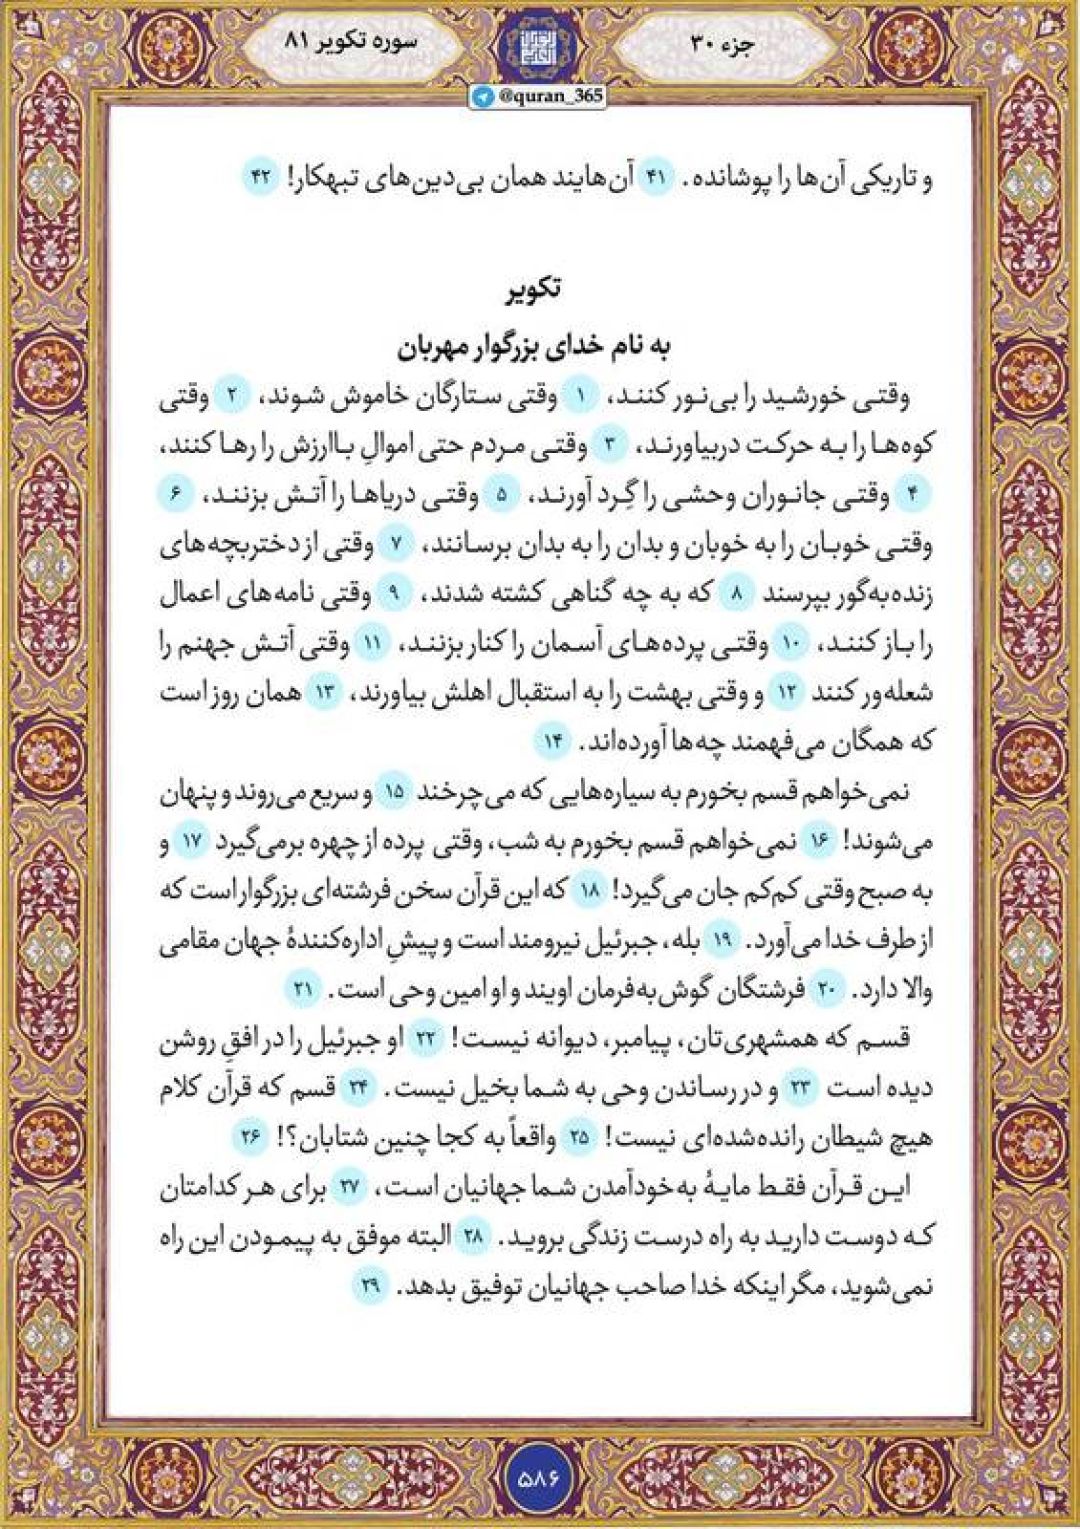 جزء ۳۰
سوره تکویر ۸۱
@quran_365
و تاریکی آن‌ها را پوشانده. ۴۱ آن‌هایند همان بی‌دین‌های تبهکار! ۴۲
تکویر
به نام خدای بزرگوار مهربان
وقتی خورشید را بی‌نور کنند، ۱ وقتی ستارگان خاموش شوند، ۲ وقتی
کوه‌ها را به حرکت دربیاورند، ۳ وقتی مردم حتی اموالِ باارزش را رها کنند،
۴ وقتی جانوران وحشی را گِرد آورند، ۵ وقتی دریاها را آتش بزنند، ۶
وقتی خوبان را به خوبان و بدان را به بدان برسانند، ۷ وقتی از دختربچه‌های
زنده‌به‌گور بپرسند ۸ که به چه گناهی کشته شدند، ۹ وقتی نامه‌های اعمال
را باز کنند، ۱۰ وقتی پرده‌های آسمان را کنار بزنند، ۱۱ وقتی آتش جهنم را
شعله‌ور کنند ۱۲ و وقتی بهشت را به استقبال اهلش بیاورند، ۱۳ همان روز است
که همگان می‌فهمند چه‌ها آورده‌اند. ۱۴
نمی‌خواهم قسم بخورم به سیاره‌هایی که می‌چرخند ۱۵ و سریع می‌روند و پنهان
می‌شوند! ۱۶ نمی‌خواهم قسم بخورم به شب، وقتی پرده از چهره برمی‌گیرد ۱۷ و
به صبح وقتی کم‌کم جان می‌گیرد! ۱۸ که این قرآن سخن فرشته‌ای بزرگوار است که
از طرف خدا می‌آورد. ۱۹ بله، جبرئیل نیرومند است و پیشِ اداره‌کنندهٔ جهان مقامی
والا دارد. ۲۰ فرشتگان گوش‌به‌فرمان اویند و او امین وحی است. ۲۱
قسم که همشهری‌تان، پیامبر، دیوانه نیست! ۲۲ او جبرئیل را در افقِ روشن
دیده است ۲۳ و در رساندن وحی به شما بخیل نیست. ۲۴ قسم که قرآن کلام
هیچ شیطان رانده‌شده‌ای نیست! ۲۵ واقعاً به کجا چنین شتابان؟! ۲۶
این قرآن فقط مایهٔ به‌خودآمدن شما جهانیان است، ۲۷ برای هر کدامتان
که دوست دارید به راه درست زندگی بروید. ۲۸ البته موفق به پیمودن این راه
نمی‌شوید، مگر اینکه خدا صاحب جهانیان توفیق بدهد. ۲۹
۵۸۶